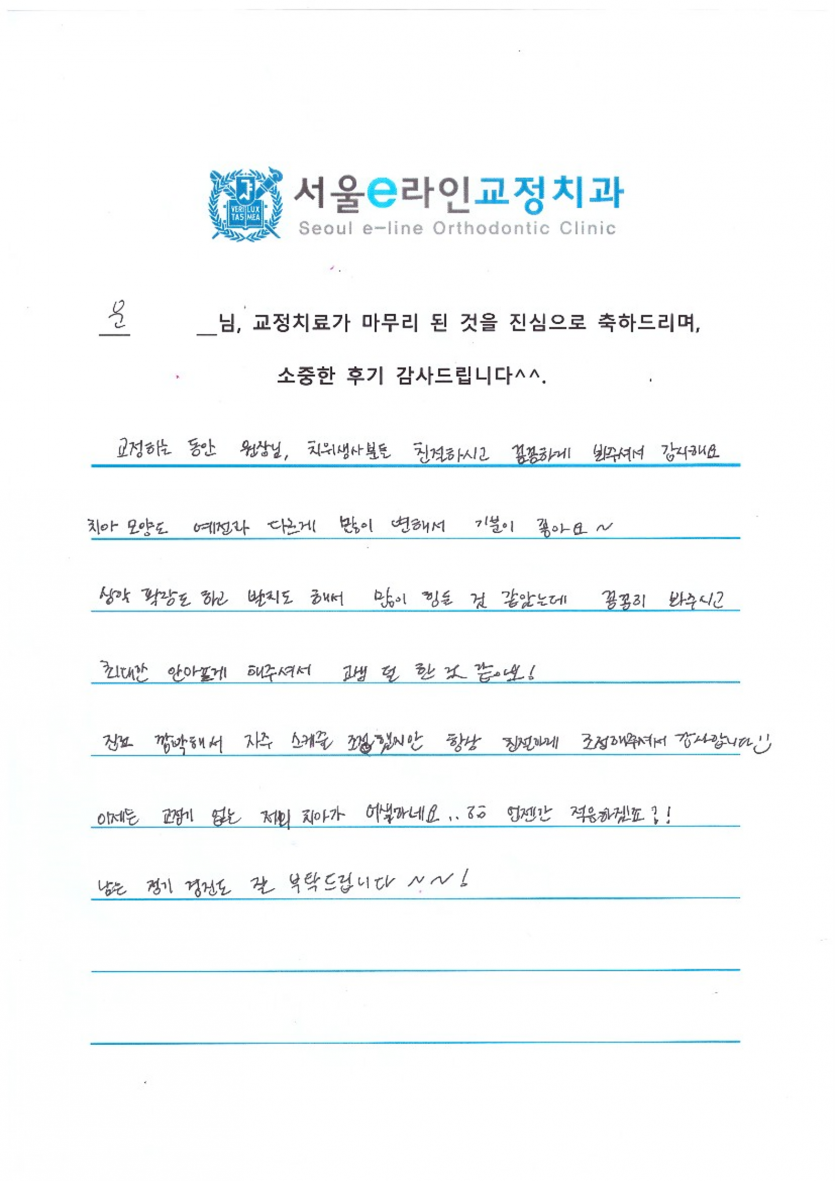 VERI LUX
TAS MEA
서울e라인교정치과
Seoul e-line Orthodontic Clinic
윤 __님, 교정치료가 마무리 된 것을 진심으로 축하드리며,
소중한 후기 감사드립니다^^.
교정하는 동안 원장님, 치위생사분들 친절하시고 꼼꼼하게 봐주셔서 감사해요
치아 모양도 예전과 다르게 많이 변해서 기분이 좋아요~
상악 확장도 하고 발치도 해서 많이 힘든 것 같았는데 꼼꼼히 봐주시고
최대한 안아프게 해주셔서 고생 덜 한 것 같아요!
진료 깜박해서 자주 스케줄 조절했지만 항상 친절하게 조정해주셔서 감사합니다
이제는 교정기 없는 저의 치아가 어색하네요.. 언젠간 적응하겠죠?!
남은 정기 검진도 잘 부탁드립니다~~!